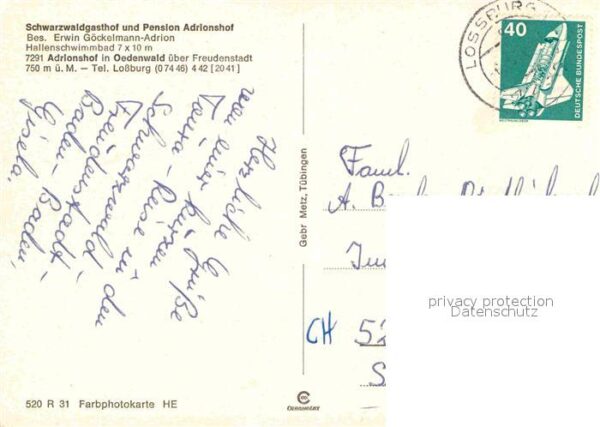 Schwarzwaldgasthof und Pension Adrionshof
Bes. Erwin Göckelmann-Adrion
Hallenschwimmbad 7 x 10 m
7291 Adrionshof in Oedenwald über Freudenstadt
750 m ü. M. – Tel. Loßburg (0 74 46) 4 42 [20 41]
Herzliche Grüße
von einer kurzen
Reise in den
Schwarzwald -
Freudenstadt -
Baden-Baden,
Gisela.
Gebr Metz, Tübingen
LOSSBURG
40
DEUTSCHE BUNDESPOST
Faml.
A.
CH 52
privacy protection
Datenschutz
520 R 31 Farbphotokarte HE